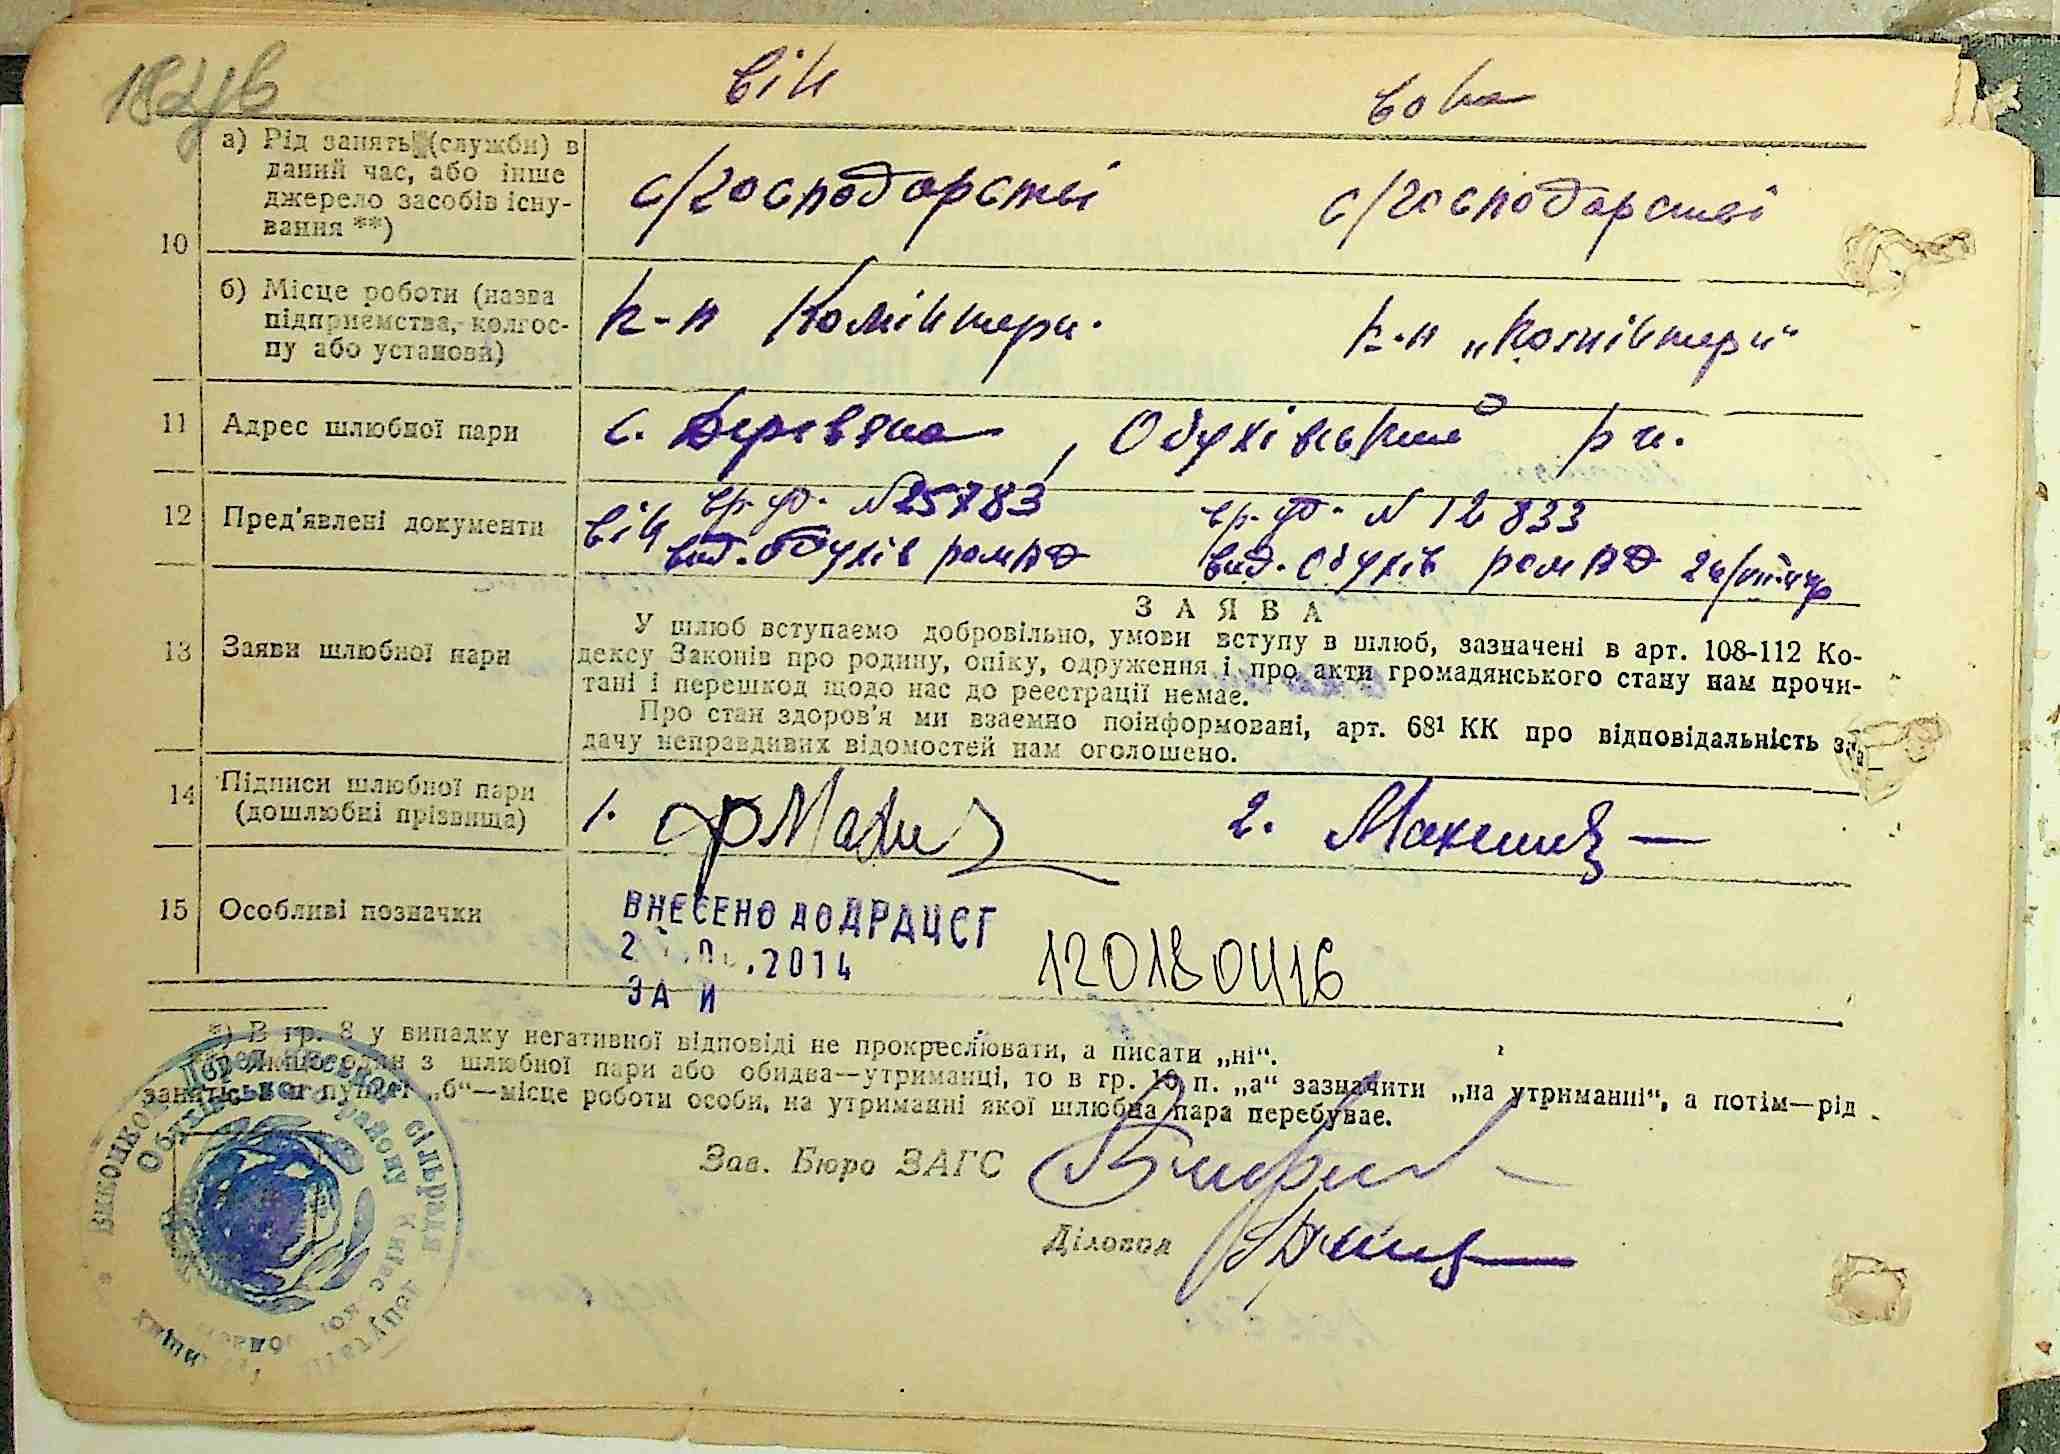 він вона
а) Рід занять (служби) в
даний час, або інше
джерело засобів існу-
вання **)
с/господарстві с/господарстві
10
б) Місце роботи (назва
підприємства, колгос-
пу або установи)
к-п Комінтерн. к-п „Комінтерн“
11 Адрес шлюбної пари с. Деревяна, Обухівський р-н.
12 Пред'явлені документи він вр. уд. № 25783 вр. уд. № 12833
вид. Обухів вид. Обухів
З А Я В А
13 Заяви шлюбної пари
У шлюб вступаємо добровільно, умови вступу в шлюб, зазначені в арт. 108-112 Ко-
дексу Законів про родину, опіку, одруження і про акти громадянського стану нам прочи-
тані і перешкод щодо нас до реєстрації немає.
Про стан здоров'я ми взаємно поінформовані, арт. 68¹ КК про відповідальність за
дачу неправдивих відомостей нам оголошено.
14 Підписи шлюбної пари
(дошлюбні прізвища)
1. 2.
15 Особливі позначки
ВНЕСЕНО ДО ДРАЦСГ
.2014
ЗА И
1201804416
*) В гр. 8 у випадку негативної відповіді не прокреслювати, а писати „ні“.
Якщо один з шлюбної пари або обидва—утриманці, то в гр. 10 п. „а“ зазначити „на утриманні“, а потім—рід
занять, а в пункті „б“—місце роботи особи, на утриманні якої шлюбна пара перебуває.
Зав. Бюро ЗАГС
Діловод
Обухівського району